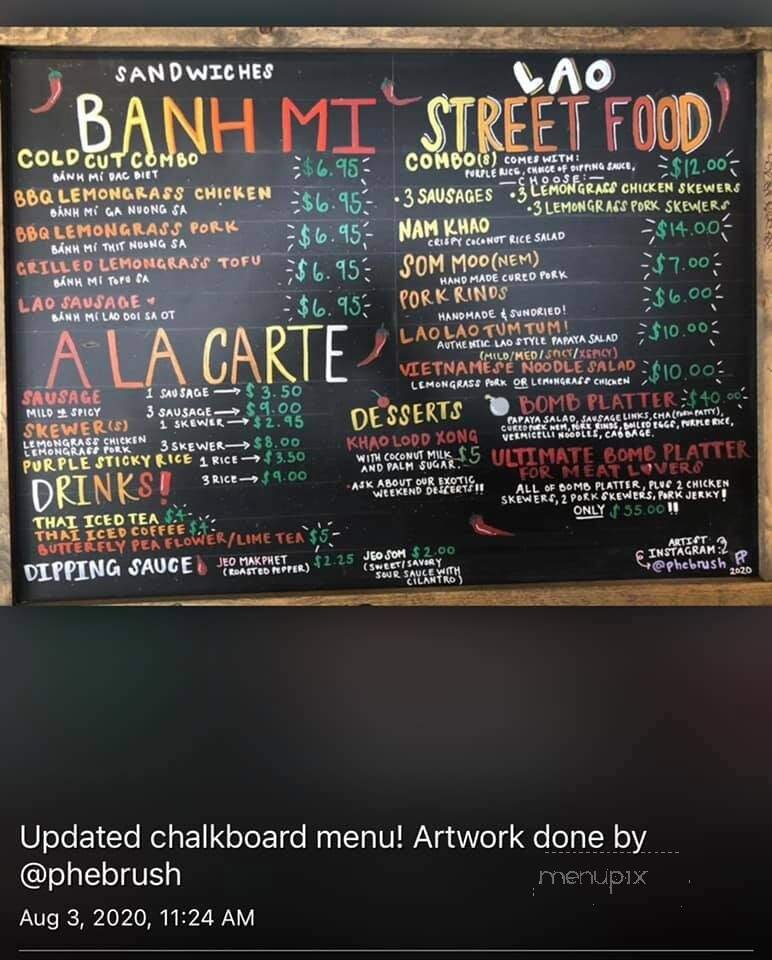 SANDWICHES
BANH MI
COLD CUT COMBO $6.95
BÁNH MÍ DAC BIET
BBQ LEMONGRASS CHICKEN $6.95
BÁNH MÍ GA NUONG SA
BBQ LEMONGRASS PORK $6.95
BÁNH MÍ THIT NUONG SA
GRILLED LEMONGRASS TOFU $6.95
BÁNH MÍ TOFU SA
LAO SAUSAGE $6.95
BÁNH MÍ LAO DOI SA OT
A LA CARTE
SAUSAGE 1 SAUSAGE → $3.50
MILD OR SPICY 3 SAUSAGE → $9.00
SKEWER(S) 1 SKEWER → $2.95
LEMONGRASS CHICKEN
LEMONGRASS PORK 3 SKEWER → $8.00
PURPLE STICKY RICE 1 RICE → $3.50
3 RICE → $9.00
DRINKS!
THAI ICED TEA $4
THAI ICED COFFEE $4
BUTTERFLY PEA FLOWER/LIME TEA $5
DIPPING SAUCE
JEO MAKPHET $2.25
(ROASTED PEPPER)
JEO SOM $2.00
(SWEET/SAVORY
SOUR SAUCE WITH
CILANTRO)
LAO
STREET FOOD
COMBO(S) COMES WITH: $12.00
PURPLE RICE, CHOICE OF DIPPING SAUCE,
—CHOOSE:—
•3 SAUSAGES •3 LEMONGRASS CHICKEN SKEWERS
•3 LEMONGRASS PORK SKEWERS
NAM KHAO $14.00
CRISPY COCONUT RICE SALAD
SOM MOO (NEM) $7.00
HAND MADE CURED PORK
PORK RINDS $6.00
HANDMADE & SUNDRIED!
LAO LAO TUM TUM! $10.00
AUTHENTIC LAO STYLE PAPAYA SALAD
(MILD/MED/SPICY/XSPICY)
VIETNAMESE NOODLE SALAD $10.00
LEMONGRASS PORK OR LEMONGRASS CHICKEN
DESSERTS
KHAO LODD XONG
WITH COCONUT MILK $5
AND PALM SUGAR.
•ASK ABOUT OUR EXOTIC
WEEKEND DESSERTS!!
BOMB PLATTER $40.00
PAPAYA SALAD, SAUSAGE LINKS, CHA (PORK PATTY),
CURED PORK NEM, PORK RINDS, BOILED EGGS, PURPLE RICE,
VERMICELLI NOODLES, CABBAGE.
ULTIMATE BOMB PLATTER
FOR MEAT LOVERS
ALL OF BOMB PLATTER, PLUS 2 CHICKEN
SKEWERS, 2 PORK SKEWERS, PORK JERKY!
ONLY $55.00!!
ARTIST
INSTAGRAM:
@phebrush
PP
2020
Updated chalkboard menu! Artwork done by
@phebrush
menupix
Aug 3, 2020, 11:24 AM